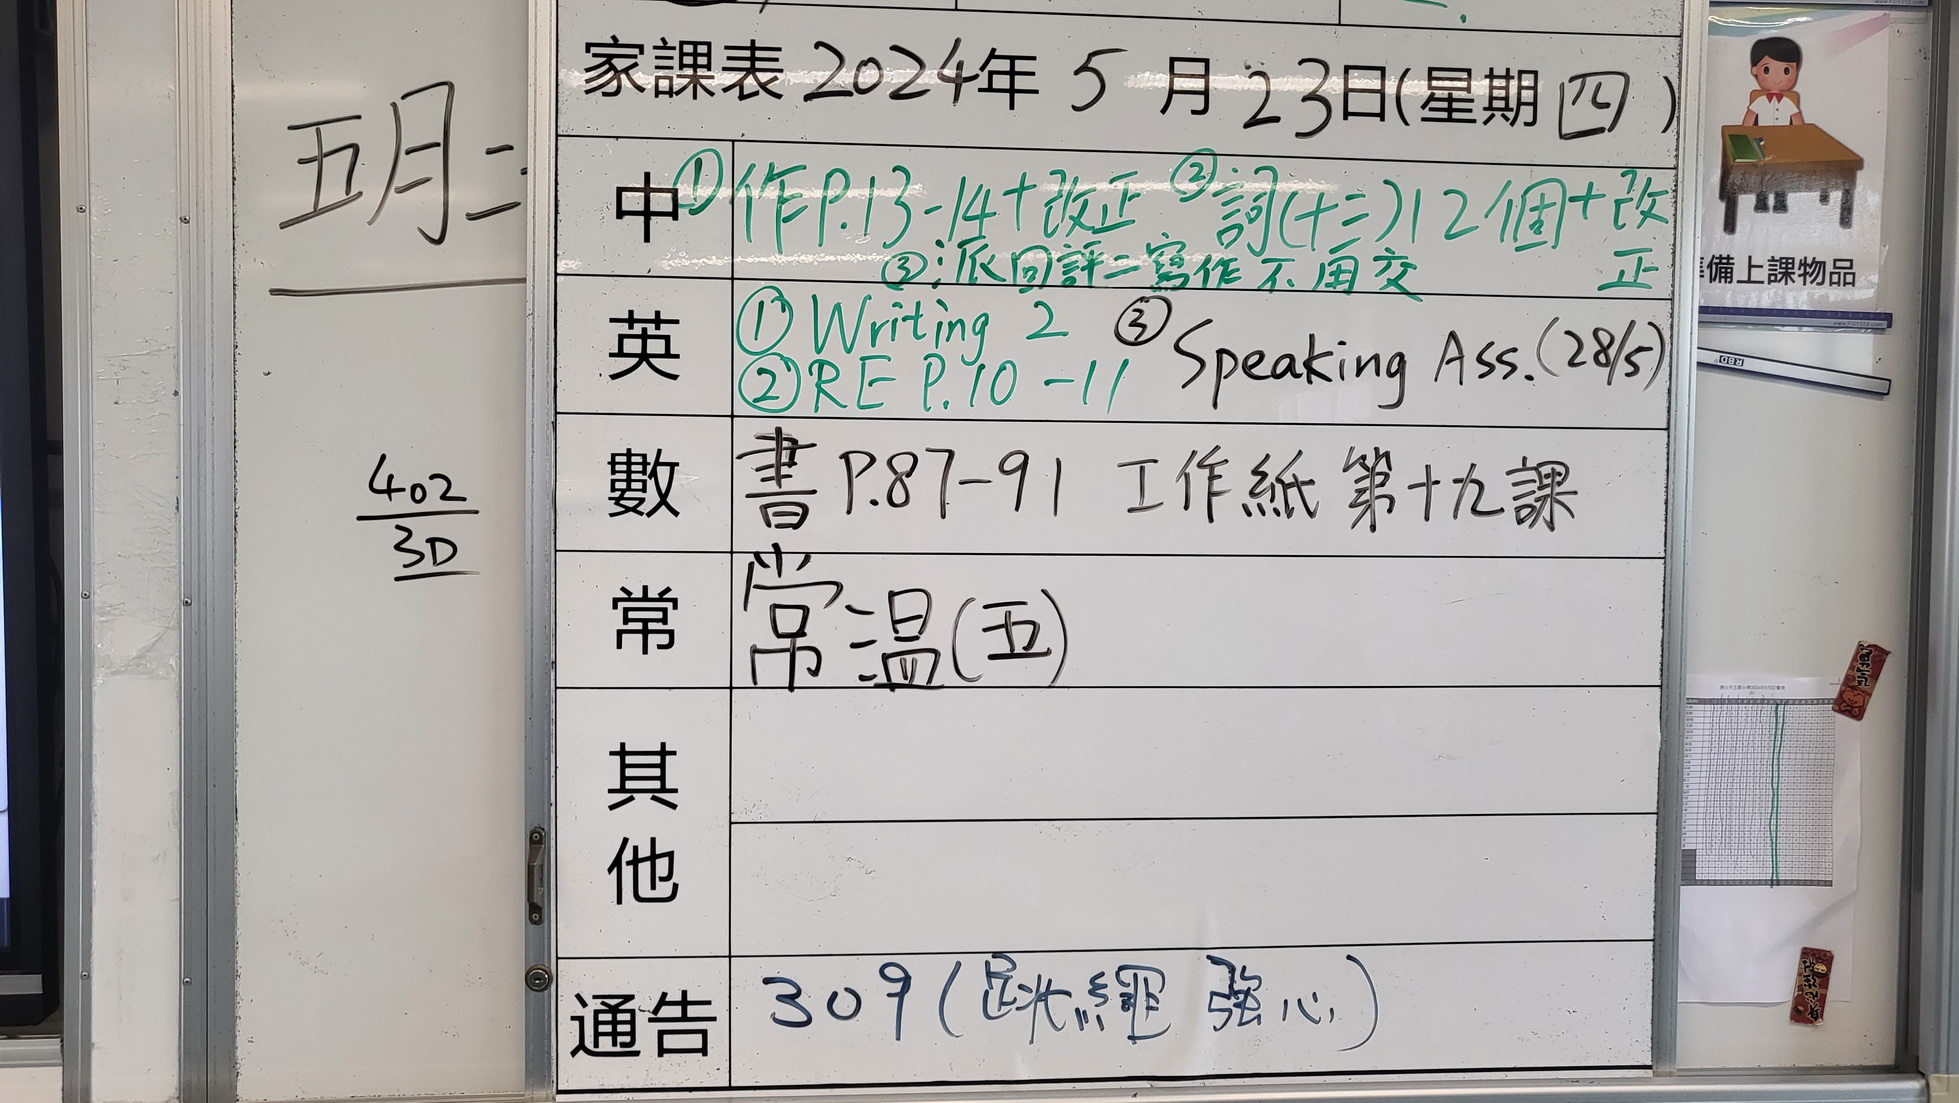 五月二
402
3D
家課表 2024年 5 月 23日(星期四)
中
① 作P.13-14+改正 ② 詞(十三)12個+改正
③:派回評二寫作 不用交
英
① Writing 2 ③ Speaking Ass.(28/5)
② RE P.10-11
數
書 P.87-91 工作紙 第十九課
常
常溫(五)
其他
通告
309(跳繩 強心)
備上課物品